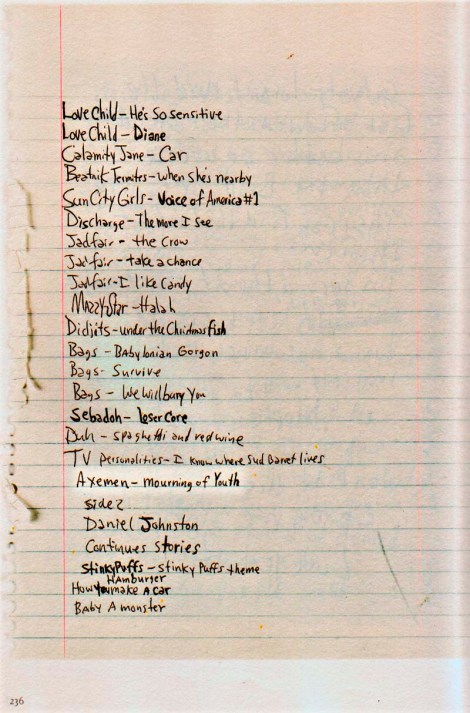 Love Child - He's So sensitive
Love Child - Diane
Calamity Jane - Car
Beatnik Termites - when she's nearby
Sun City Girls - Voice of America #1
Discharge - The more I see
Jadfair - the Crow
Jadfair - take a chance
Jadfair - I like candy
MAZZY Star - Halah
Didjits - under the Christmas fish
Bags - BAbylonian Gorgon
Bags - Survive
Bags - We Will bury You
Sebadoh - loser Core
Duh - spaghetti and red wine
TV personalities - I know where Syd Barret lives
Axemen - mourning of Youth
side 2
Daniel Johnston
Continues Stories
StinkyPuffs - Stinky Puffs theme
HAmburger
How You make A car
BAby A monster
236